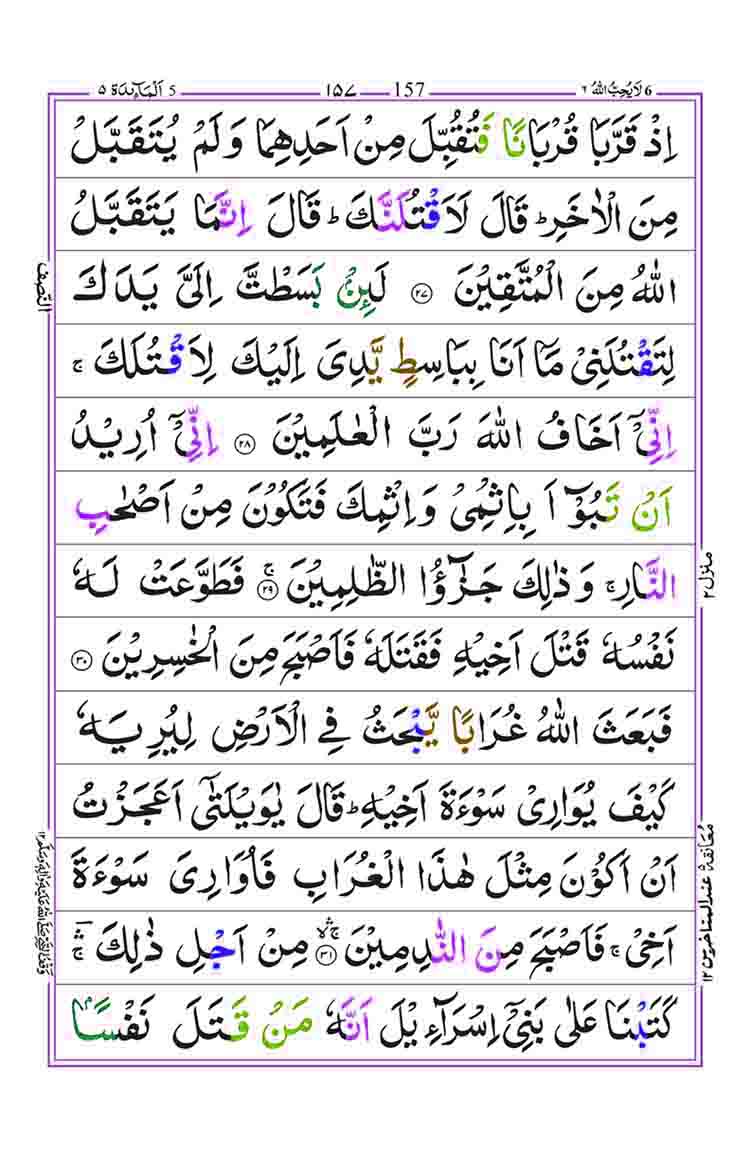 5 اَلْمَآئِدَة ۵
۱۵۷ 157
6 لَا یُحِبُّ اللہُ ۶
اِذْ قَرَّبَا قُرْبَانًا فَتُقُبِّلَ مِنْ اَحَدِهِمَا وَلَمْ یُتَقَبَّلْ
مِنَ الْاٰخَرِ ؕ قَالَ لَاَقْتُلَنَّكَ ؕ قَالَ اِنَّمَا یَتَقَبَّلُ
اللّٰهُ مِنَ الْمُتَّقِیْنَ ۲۷ لَىِٕنْۢ بَسَطْتَّ اِلَیَّ یَدَكَ
لِتَقْتُلَنِیْ مَاۤ اَنَا بِبَاسِطٍ یَّدِیَ اِلَیْكَ لِاَقْتُلَكَ ۚ
اِنِّیْۤ اَخَافُ اللّٰهَ رَبَّ الْعٰلَمِیْنَ ۲۸ اِنِّیْۤ اُرِیْدُ
اَنْ تَبُوْٓاَ بِاِثْمِیْ وَاِثْمِكَ فَتَكُوْنَ مِنْ اَصْحٰبِ
النَّارِ ۚ وَذٰلِكَ جَزٰٓؤُا الظّٰلِمِیْنَ ۚ ۲۹ فَطَوَّعَتْ لَهٗ
نَفْسُهٗ قَتْلَ اَخِیْهِ فَقَتَلَهٗ فَاَصْبَحَ مِنَ الْخٰسِرِیْنَ ۳۰
فَبَعَثَ اللّٰهُ غُرَابًا یَّبْحَثُ فِی الْاَرْضِ لِیُرِیَهٗ
كَیْفَ یُوَارِیْ سَوْءَةَ اَخِیْهِ ؕ قَالَ یٰوَیْلَتٰۤی اَعَجَزْتُ
اَنْ اَكُوْنَ مِثْلَ هٰذَا الْغُرَابِ فَاُوَارِیَ سَوْءَةَ
اَخِیْ ۚ فَاَصْبَحَ مِنَ النّٰدِمِیْنَ ۚۛۙ ۳۱ مِنْ اَجْلِ ذٰلِكَ ۚۛ
كَتَبْنَا عَلٰی بَنِیْۤ اِسْرَآءِیْلَ اَنَّهٗ مَنْ قَتَلَ نَفْسًۢا
النّصف
منزل ۲
معانقة عند المتاخرین ۱۲